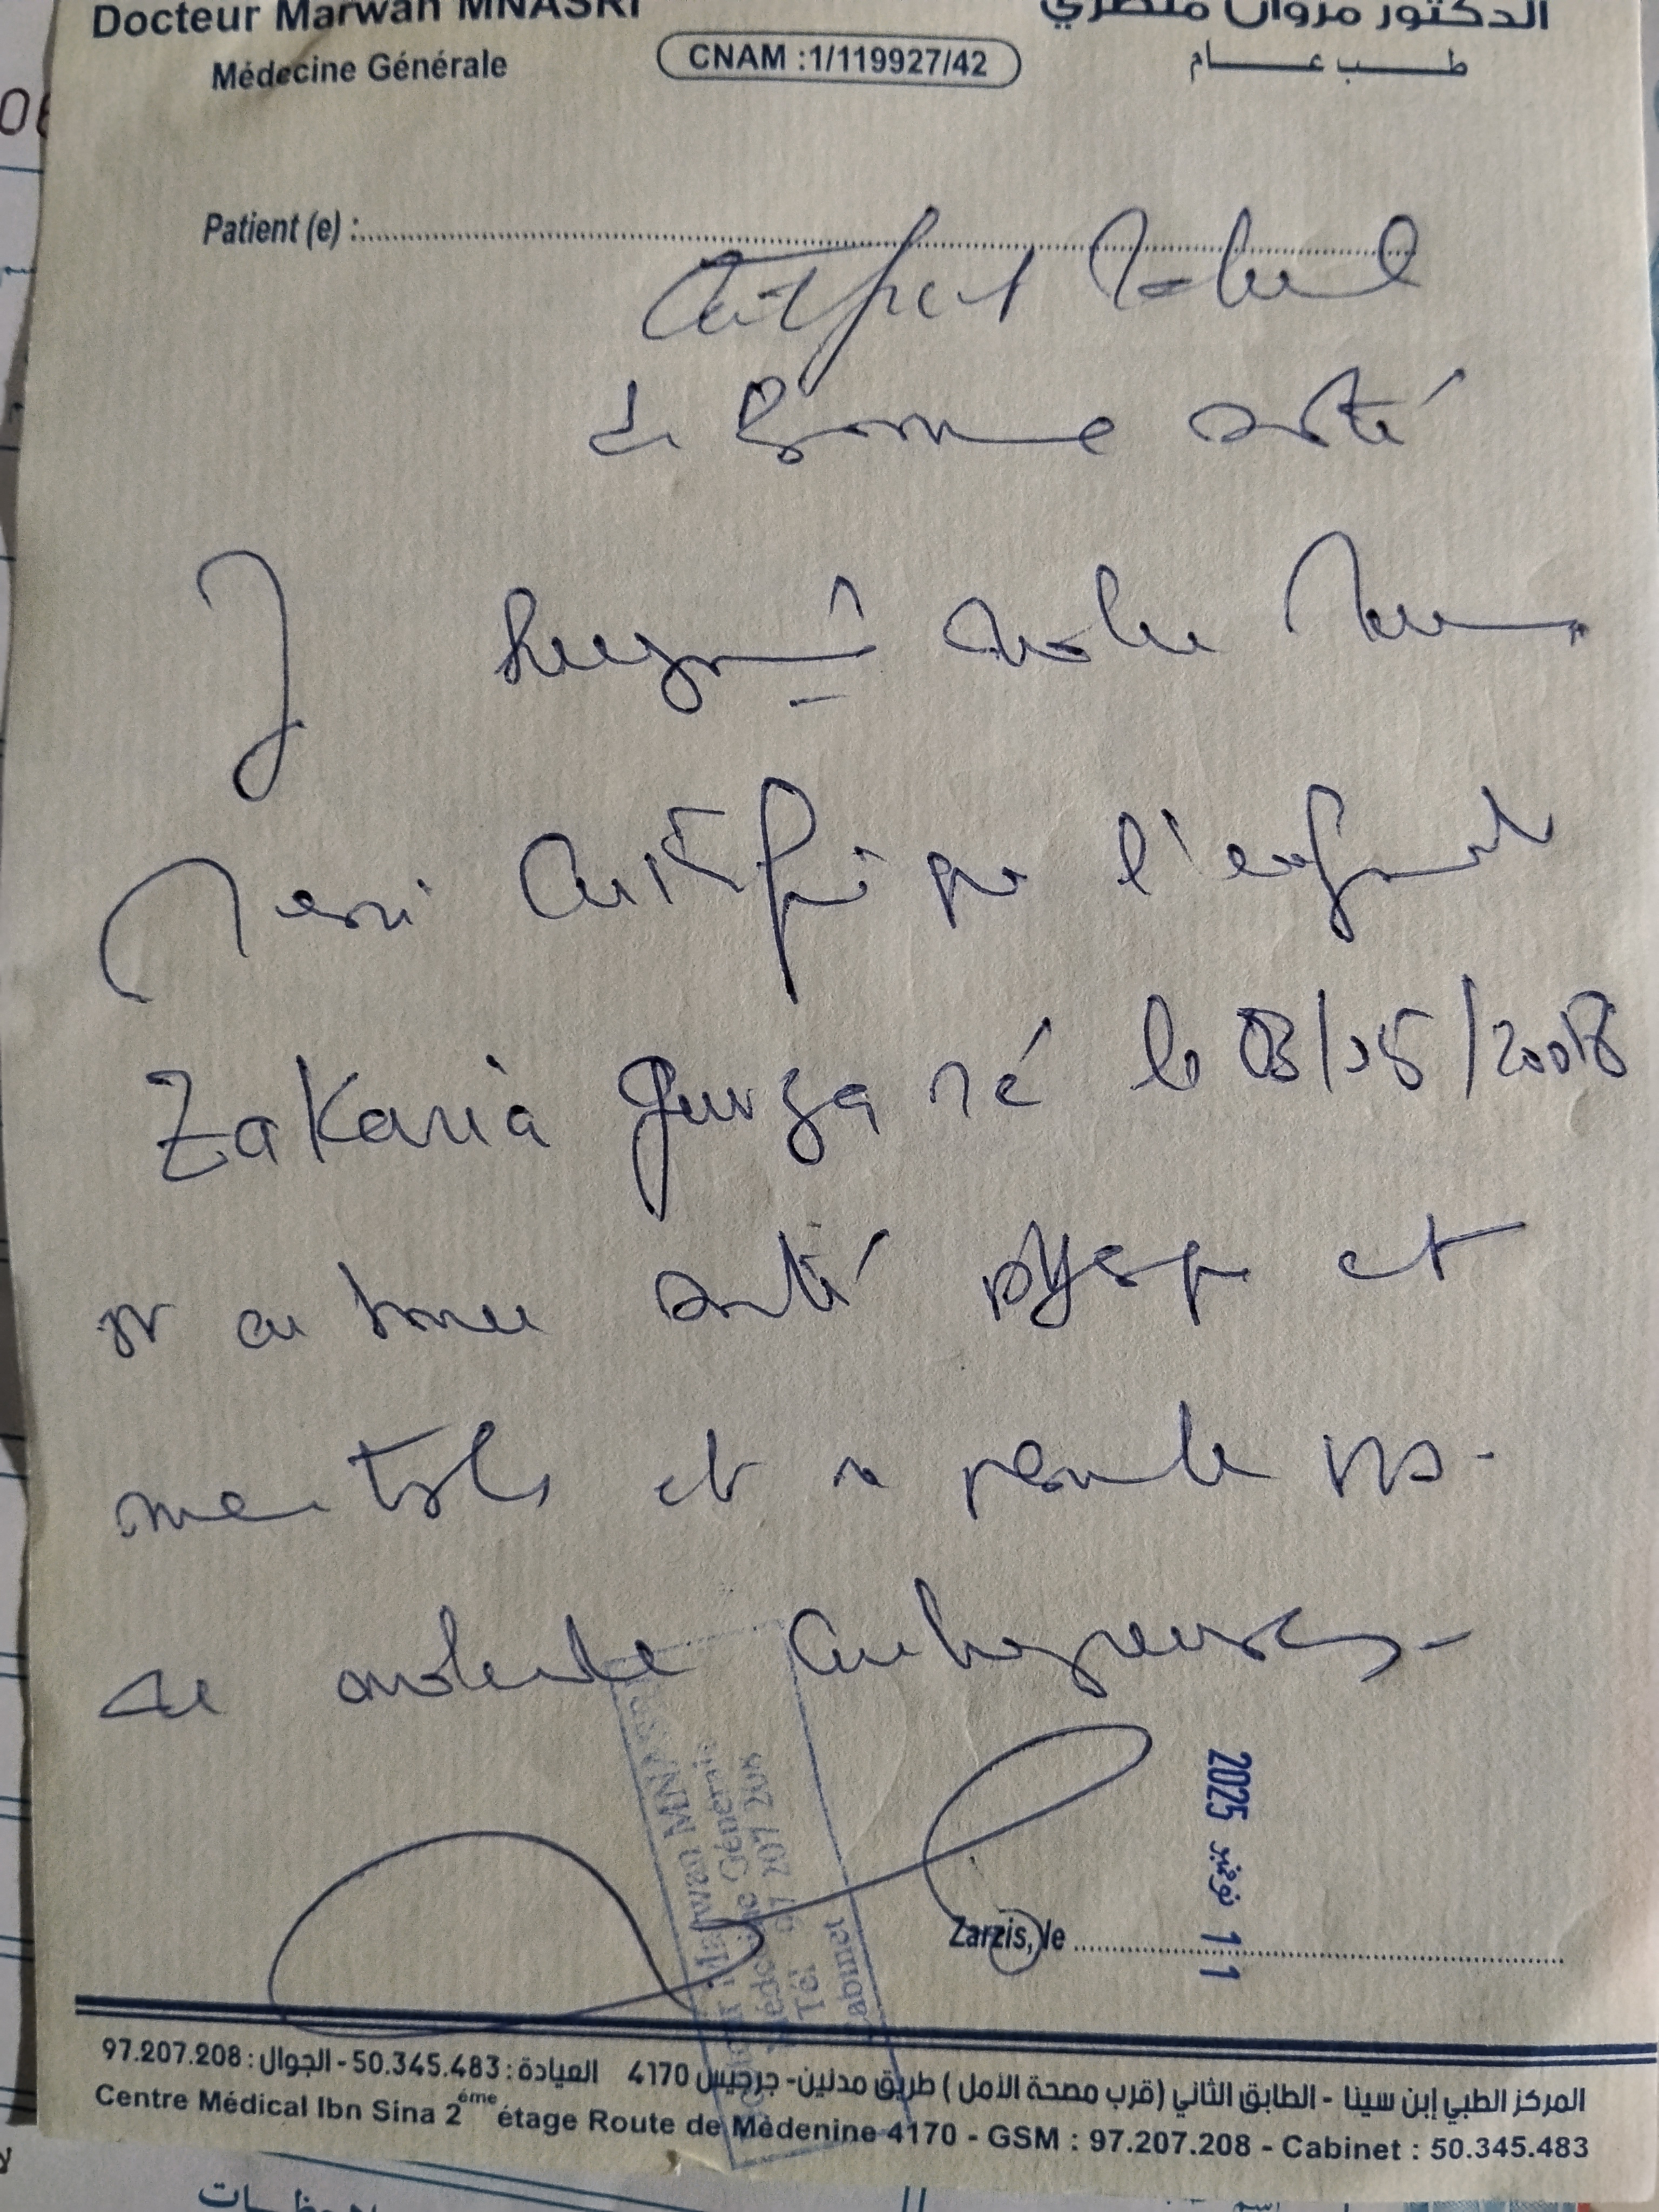 Docteur Marwan MNASRI
الدكتور مروان منصري
Médecine Générale
CNAM :1/119927/42
طب عام
Patient (e) :
Certificat Médical
de Bonne santé
Je soussigné docteur
Mnasri certifie que l'enfant
Zakaria né le 03/05/2018
est en bonne santé physique et
mentale et ne présente pas
de maladie contagieuse.
Marwan MNASRI
Médecine Générale
Tél 97 207 208
Cabinet
Zarzis, le 11 نوفمبر 2025
المركز الطبي إبن سينا - الطابق الثاني (قرب مصحة الأمل) طريق مدنين- جرجيس 4170 العيادة : 50.345.483 - الجوال : 97.207.208
Centre Médical Ibn Sina 2éme étage Route de Médenine 4170 - GSM : 97.207.208 - Cabinet : 50.345.483